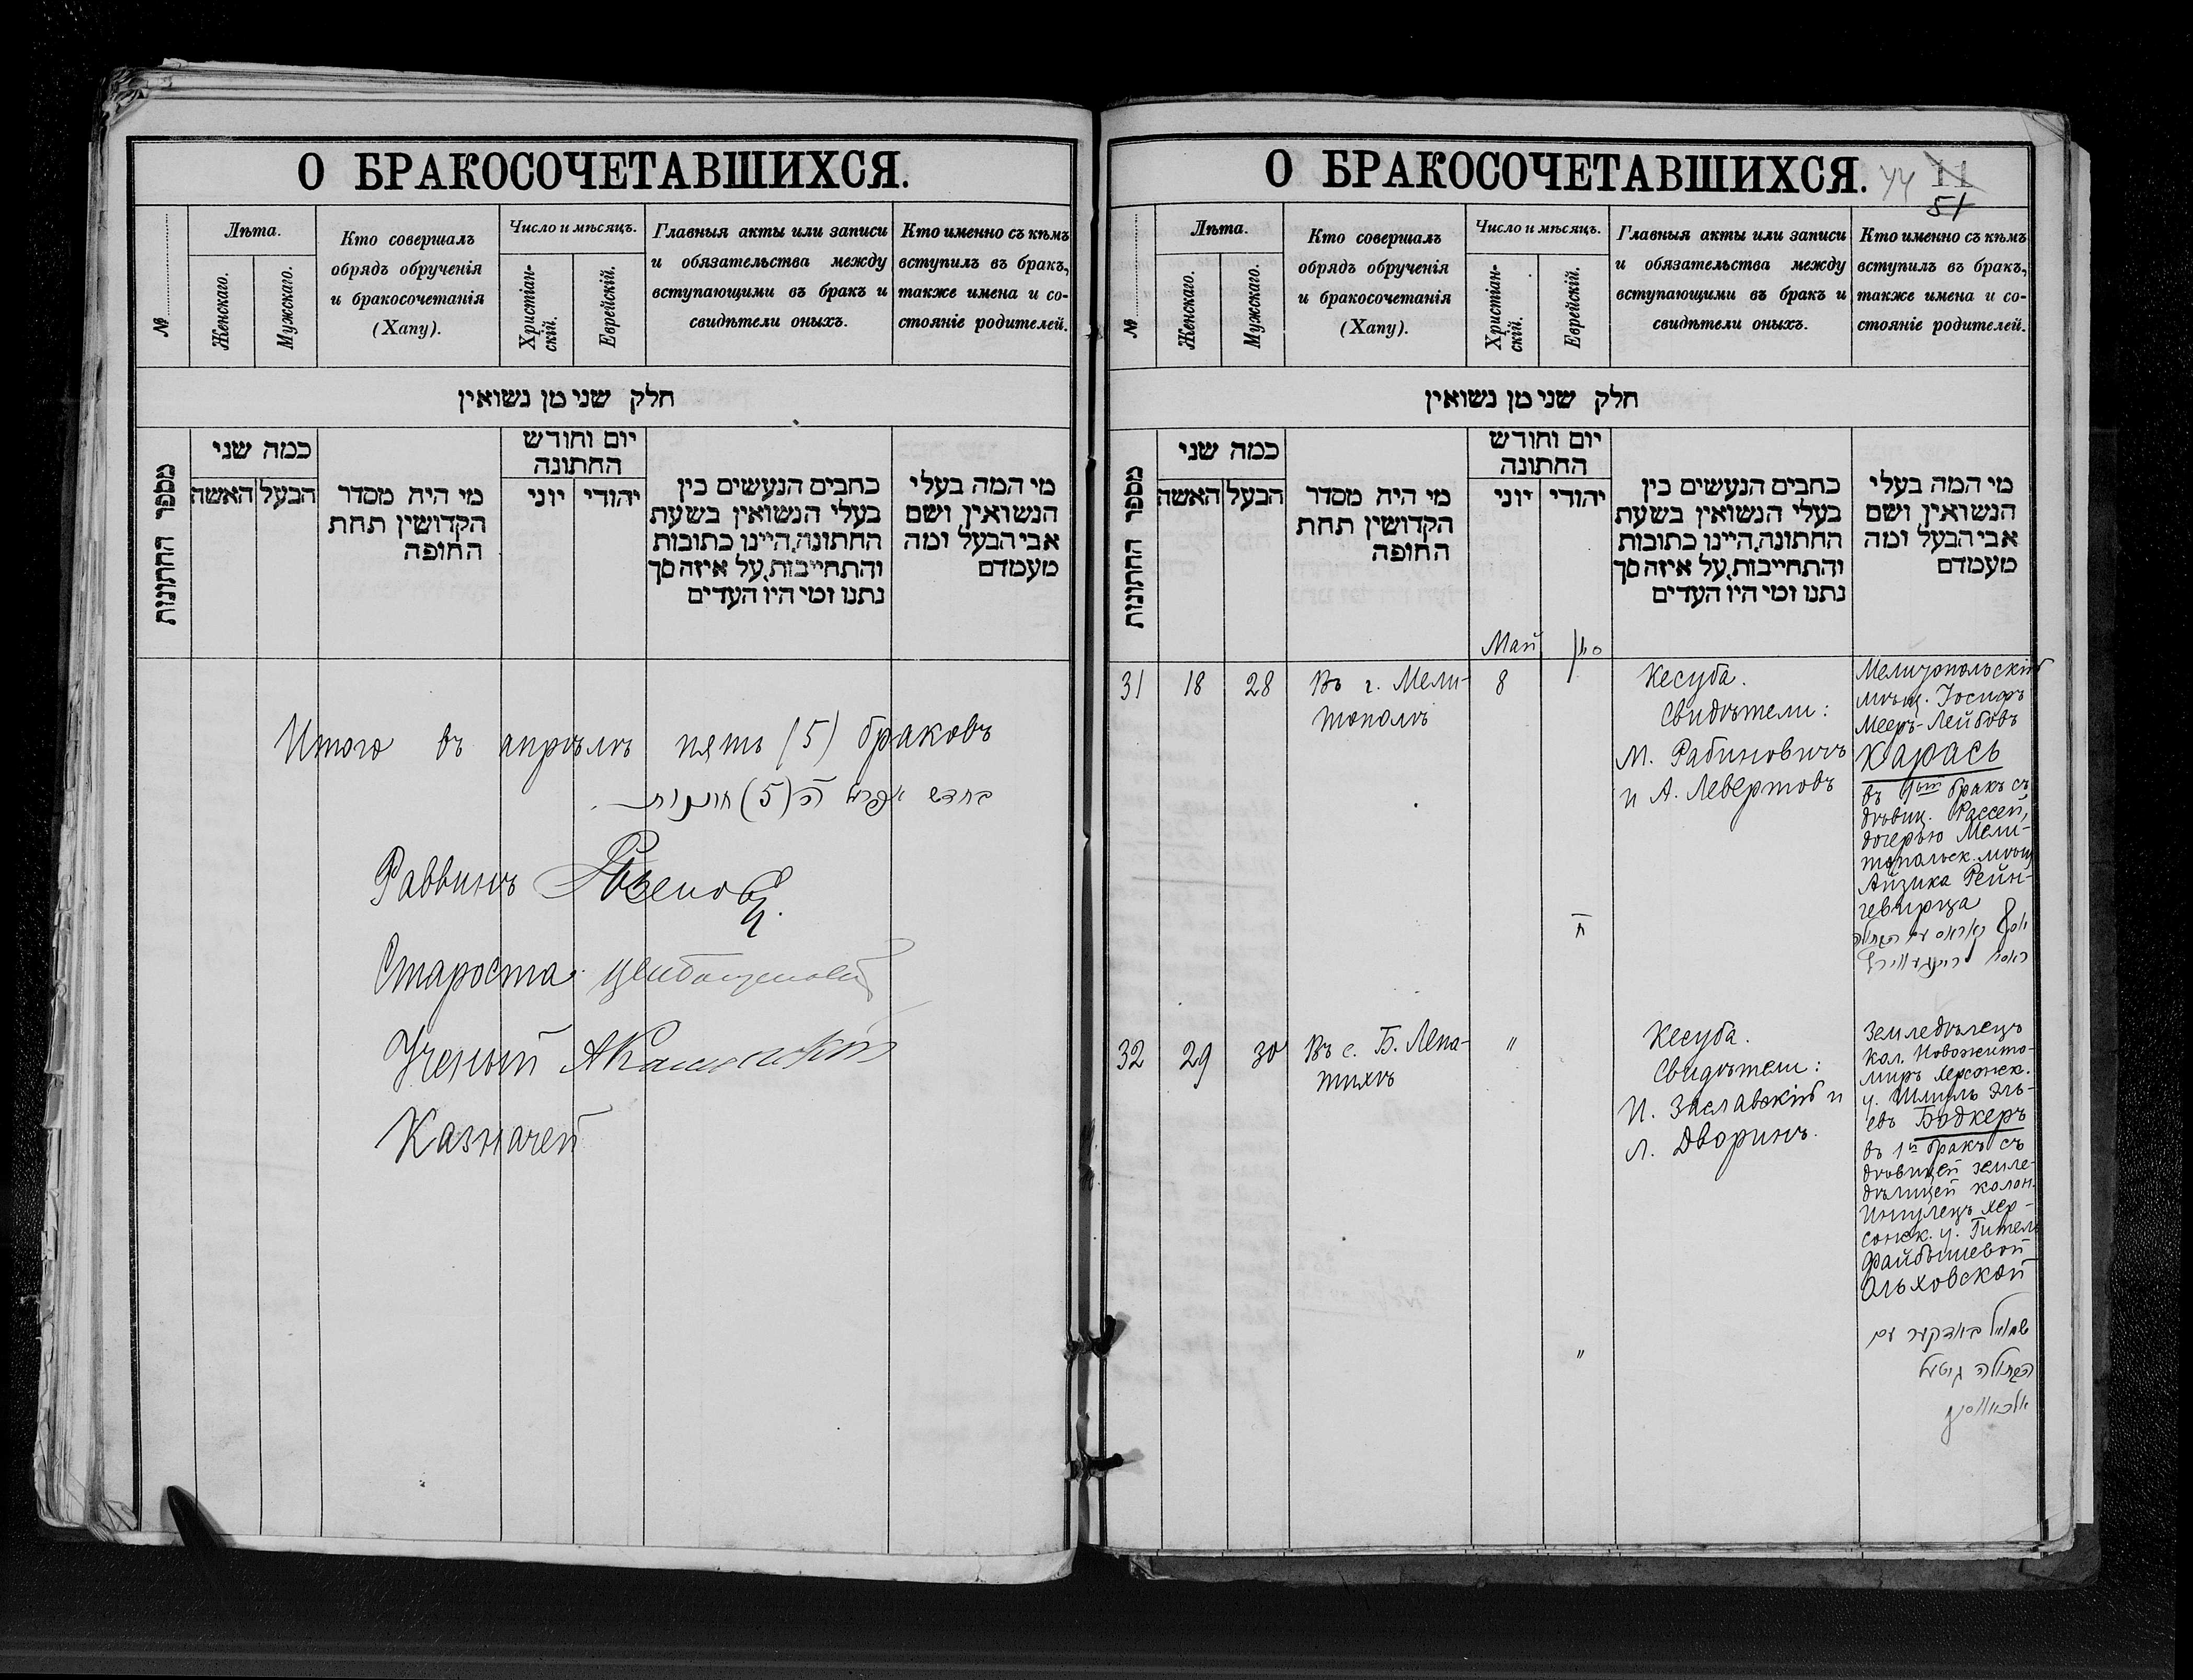 О БРАКОСОЧЕТАВШИХСЯ.
№
Лѣта.
Женскаго.
Мужскаго.
Кто совершалъ
обрядъ обрученія
и бракосочетанія
(Хапу).
Число и мѣсяцъ.
Христіан-
скій.
Еврейскій.
Главныя акты или записи
и обязательства между
вступающими въ бракъ и
свидѣтели оныхъ.
Кто именно съ кѣмъ
вступилъ въ бракъ,
также имена и со-
стояніе родителей.
חלק שני מן נשואין
מספר החתונות
כמה שני
האשה
הבעל
מי היה מסדר
הקדושין תחת
החופה
יום וחודש
החתונה
יוני
יהודי
כתבים הנעשים בין
בעלי הנשואין בשעת
החתונה, היינו כתובות
והתחייבות, על איזה סך
נתנו ומי היו העדים
מי המה בעלי
הנשואין ושם
אבי הבעל ומה
מעמדם
Итого въ апрѣлѣ пять (5) браковъ
בחדש אפריל ה' (5) חתונות
Раввинъ
Староста
Ученый
Казначей
О БРАКОСОЧЕТАВШИХСЯ.
44 11
51
№
Лѣта.
Женскаго.
Мужскаго.
Кто совершалъ
обрядъ обрученія
и бракосочетанія
(Хапу).
Число и мѣсяцъ.
Христіан-
скій.
Еврейскій.
Главныя акты или записи
и обязательства между
вступающими въ бракъ и
свидѣтели оныхъ.
Кто именно съ кѣмъ
вступилъ въ бракъ,
также имена и со-
стояніе родителей.
חלק שני מן נשואין
מספר החתונות
כמה שני
האשה
הבעל
מי היה מסדר
הקדושין תחת
החופה
יום וחודש
החתונה
יוני
יהודי
כתבים הנעשים בין
בעלי הנשואין בשעת
החתונה, היינו כתובות
והתחייבות, על איזה סך
נתנו ומי היו העדים
מי המה בעלי
הנשואין ושם
אבי הבעל ומה
מעמדם
Май סיון
31
18
28
Въ г. Мели-
тополѣ
8
ח
Кесуба.
Свидѣтели:
М. Рабиновичъ
и А. Левертовъ
Мелитопольскій
мѣщ. Іосифъ
Мееръ-Лейбовъ
Карась
въ 1ый бракъ съ
дѣвиц. Рассей,
дочерью Мели-
топольск. мѣщ
Айзика Рейн-
гевирца
יוסף קאראס עם הבתולה
ראסיא ריינגעווירץ
32
29
30
Въ с. Б. Лепа-
тихѣ
"
"
Кесуба.
Свидѣтели:
И. Заславскій и
Л. Дворинъ.
Земледѣлецъ
кол. Новожито-
миръ Херсонск.
у. Шмиль Эль-
евъ Бодкеръ
въ 1й бракъ съ
дѣвицей земле-
дѣлицей колон.
Ингулецъ Хер-
сонск. у. Гитель
Файбишевой
Ольховской
שמואל באדקער עם
הבתולה גיטעל
אלכאווסקי